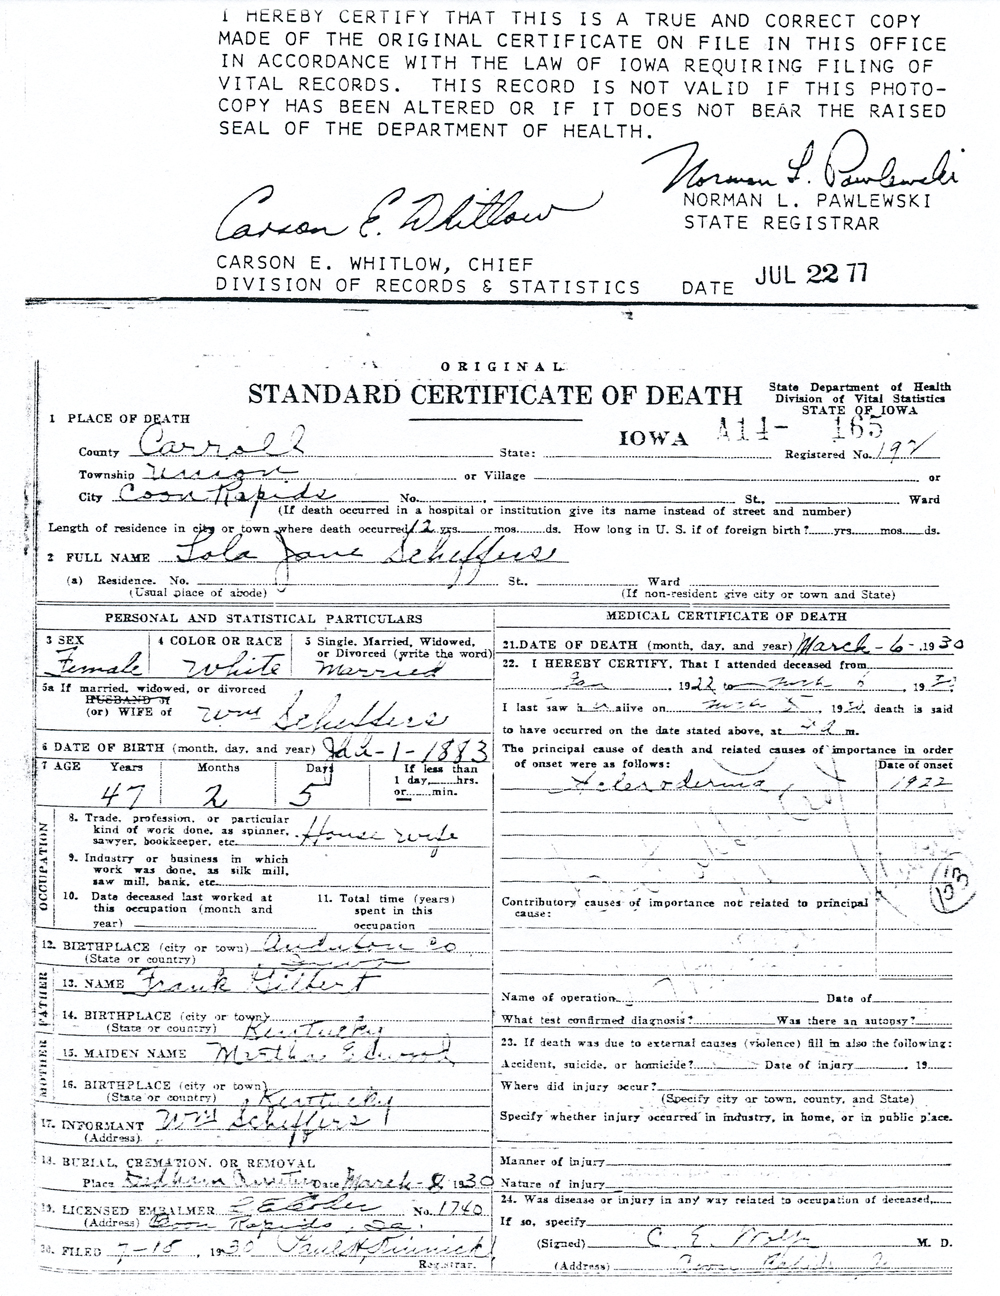 I HEREBY CERTIFY THAT THIS IS A TRUE AND CORRECT COPY
MADE OF THE ORIGINAL CERTIFICATE ON FILE IN THIS OFFICE
IN ACCORDANCE WITH THE LAW OF IOWA REQUIRING FILING OF
VITAL RECORDS. THIS RECORD IS NOT VALID IF THIS PHOTO-
COPY HAS BEEN ALTERED OR IF IT DOES NOT BEAR THE RAISED
SEAL OF THE DEPARTMENT OF HEALTH.
Norman L. Pawlewski
NORMAN L. PAWLEWSKI
STATE REGISTRAR
Carson E. Whitlow
CARSON E. WHITLOW, CHIEF
DIVISION OF RECORDS & STATISTICS DATE JUL 22 77
ORIGINAL
STANDARD CERTIFICATE OF DEATH
State Department of Health
Division of Vital Statistics
STATE OF IOWA
1 PLACE OF DEATH
IOWA A14- 165
County Carroll State: Registered No. 192
Township Union or Village or
City Coon Rapids No. St., Ward
(If death occurred in a hospital or institution give its name instead of street and number)
Length of residence in city or town where death occurred 12 yrs. mos. ds. How long in U. S. if of foreign birth? yrs. mos. ds.
2 FULL NAME Lola Jane Scheffers
(a) Residence. No. St., Ward
(Usual place of abode) (If non-resident give city or town and State)
PERSONAL AND STATISTICAL PARTICULARS
3 SEX 4 COLOR OR RACE 5 Single, Married, Widowed,
or Divorced (write the word)
Female White Married
5a If married, widowed, or divorced
HUSBAND of
(or) WIFE of Wm Scheffers
6 DATE OF BIRTH (month, day, and year) Jan-1-1883
7 AGE Years Months Days If less than
1 day, hrs.
or min.
47 2 5
OCCUPATION
8. Trade, profession, or particular
kind of work done, as spinner,
sawyer, bookkeeper, etc. House wife
9. Industry or business in which
work was done, as silk mill,
saw mill, bank, etc.
10. Date deceased last worked at
this occupation (month and
year)
11. Total time (years)
spent in this
occupation
12. BIRTHPLACE (city or town) Audubon Co
(State or country) Iowa
FATHER
13. NAME Frank Gilbert
14. BIRTHPLACE (city or town)
(State or country) Kentucky
MOTHER
15. MAIDEN NAME Martha
16. BIRTHPLACE (city or town)
(State or country) Kentucky
17. INFORMANT Wm Scheffers
(Address)
18. BURIAL, CREMATION, OR REMOVAL
Place Dedham Date March-8 1930
19. LICENSED EMBALMER No. 1740
(Address) Coon Rapids Ia.
20. FILED 7-15, 1930 Paul H Pinnick
Registrar.
MEDICAL CERTIFICATE OF DEATH
21. DATE OF DEATH (month, day, and year) March-6-, 1930
22. I HEREBY CERTIFY, That I attended deceased from
Jan, 1922 to, 19
I last saw h alive on, 19, death is said
to have occurred on the date stated above, at m.
The principal cause of death and related causes of importance in order
of onset were as follows: Date of onset
Scleroderma 1922
133
Contributory causes of importance not related to principal
cause:
Name of operation Date of
What test confirmed diagnosis? Was there an autopsy?
23. If death was due to external causes (violence) fill in also the following:
Accident, suicide, or homicide? Date of injury 19
Where did injury occur?
(Specify city or town, county, and State)
Specify whether injury occurred in industry, in home, or in public place.
Manner of injury
Nature of injury
24. Was disease or injury in any way related to occupation of deceased,
If so, specify
(Signed) C. E. M. D.
(Address) Coon Rapids Ia